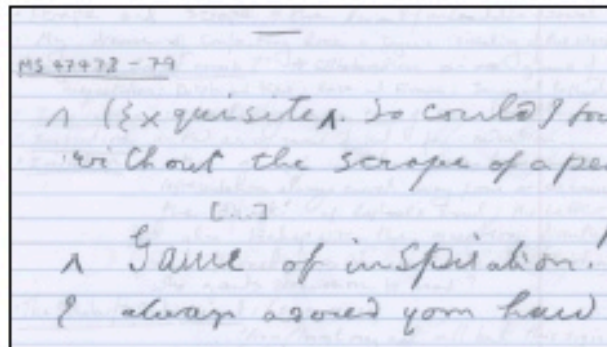 MS 47473-79
^ (Exquisite ^. So could I
without the scrape of a
[...]
^ Game of inspiration!
I always adored your